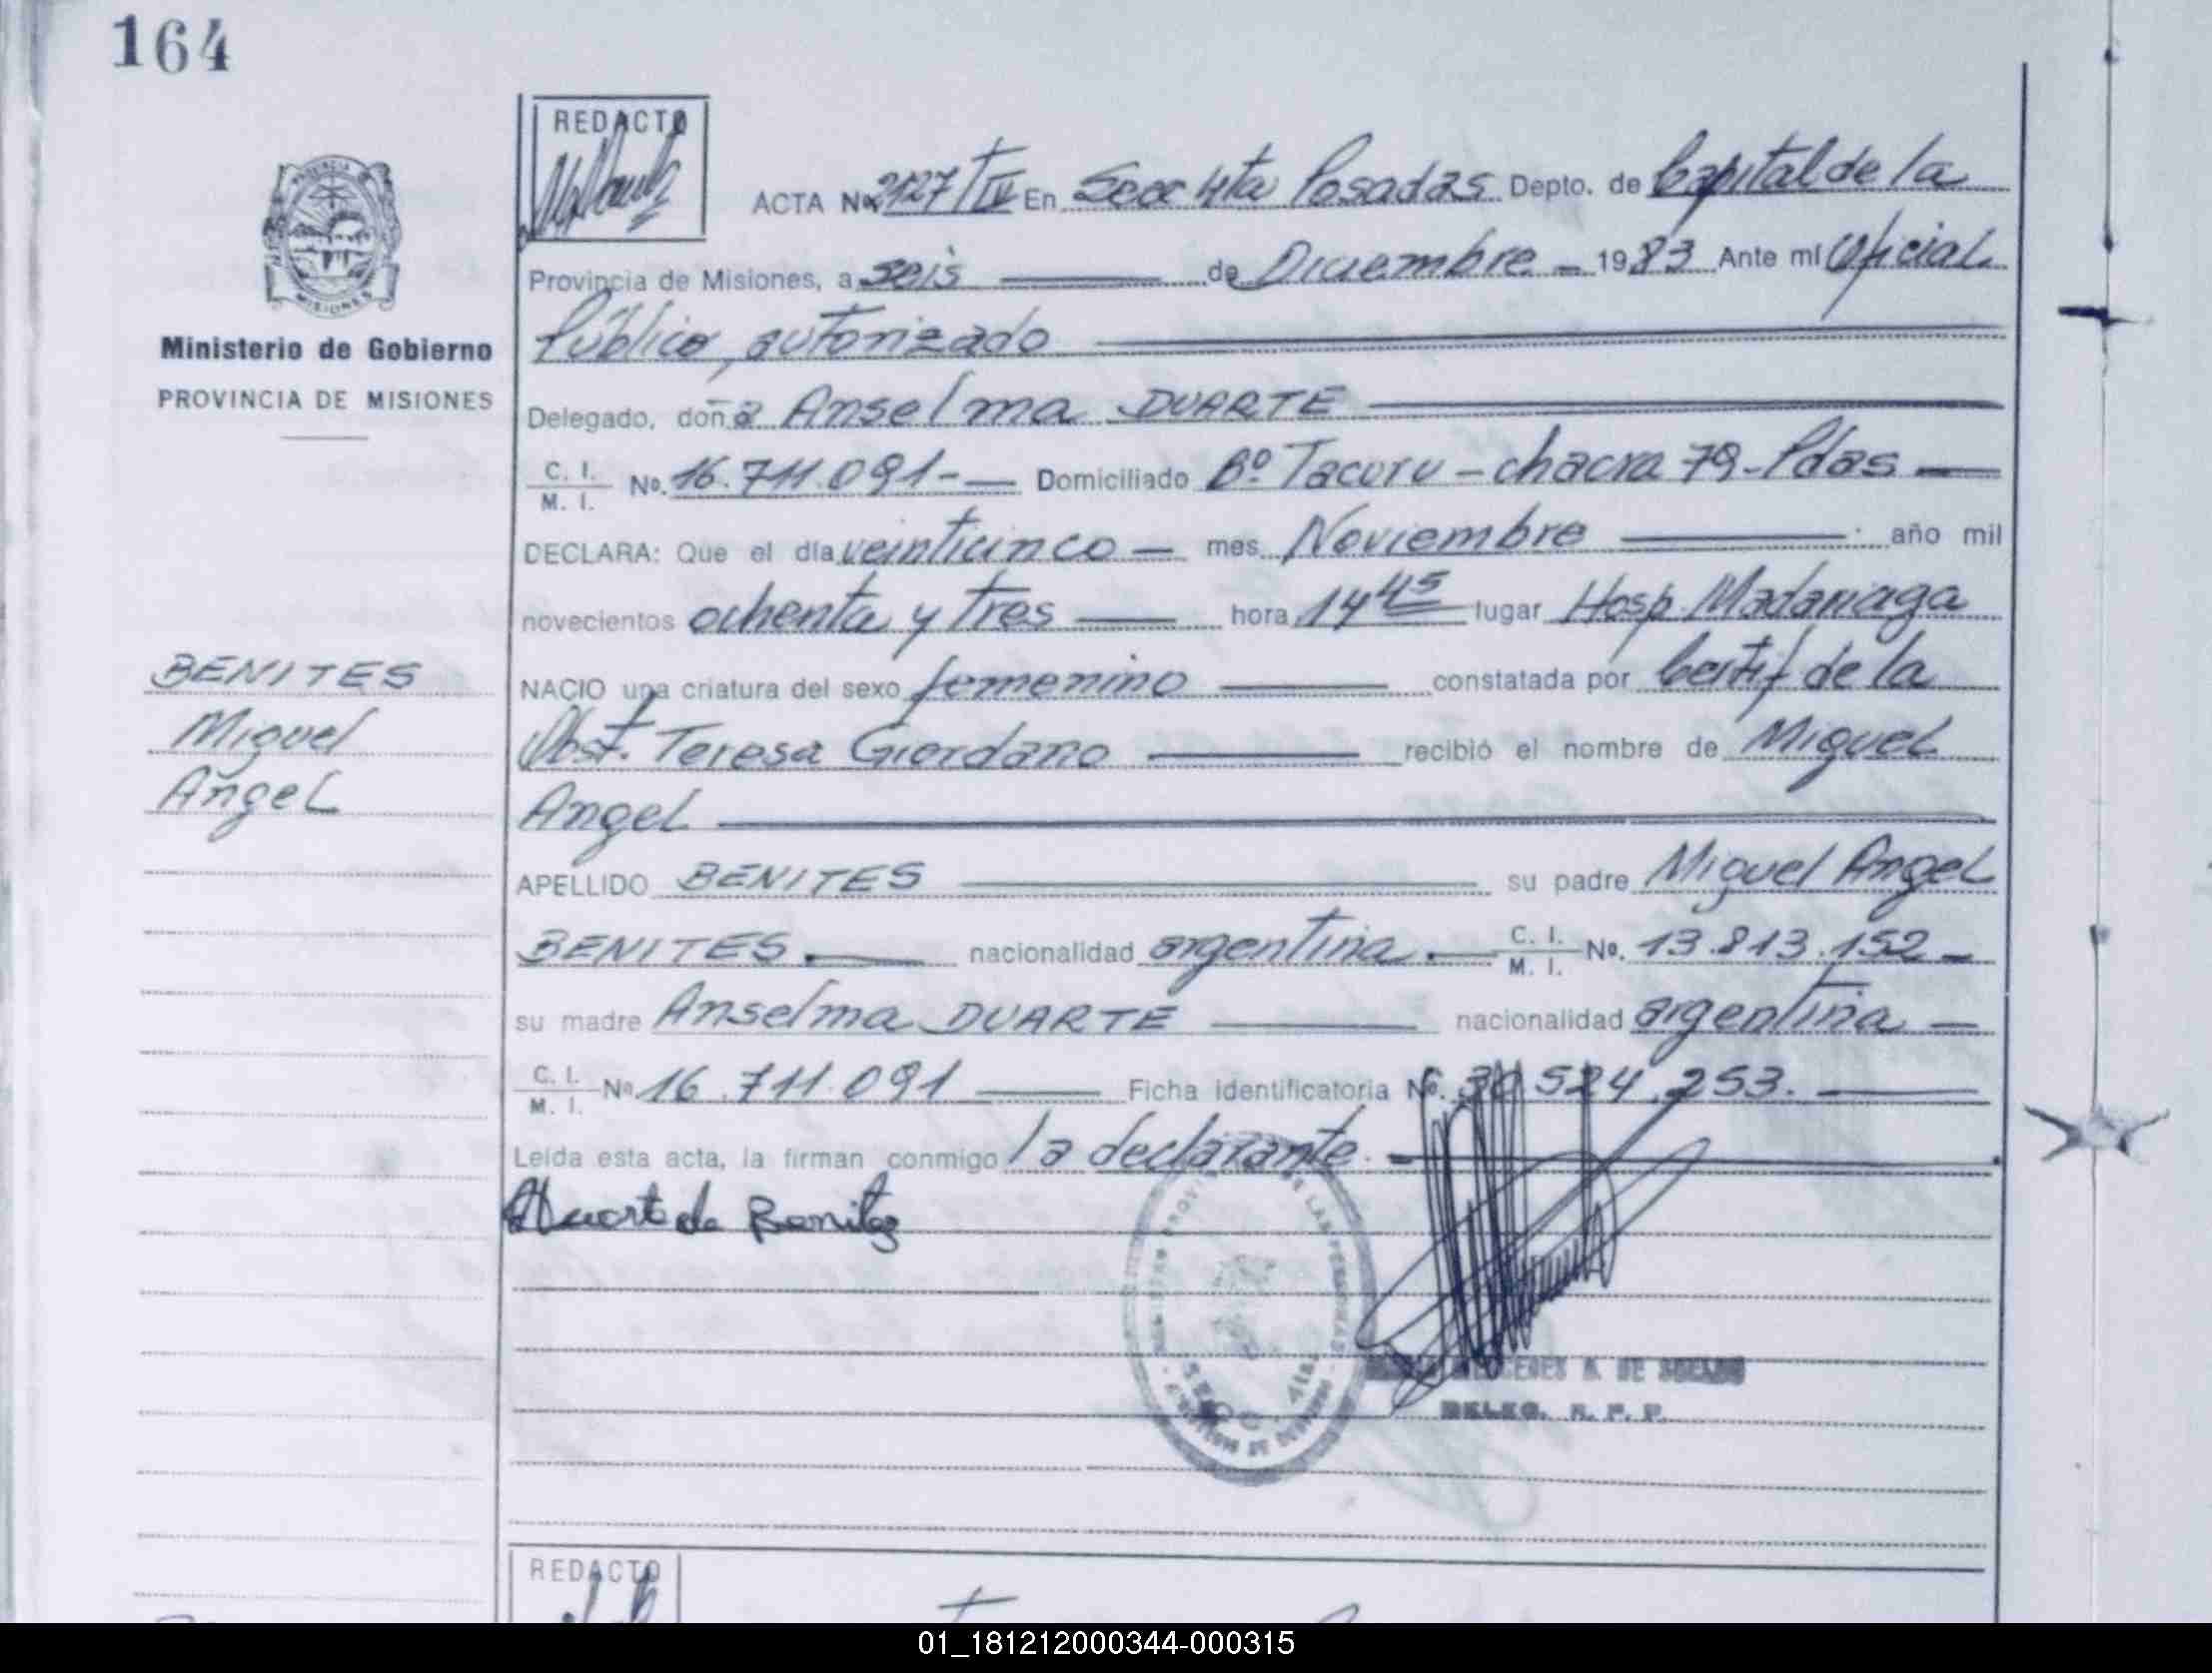 164
REDACTO
ACTA No. 2127/IV En Secc 4ta Posadas Depto. de Capital de la
Provincia de Misiones, a seis de Diciembre 1983 Ante mi Oficial
Público, autorizado
Ministerio de Gobierno
PROVINCIA DE MISIONES
Delegado, doña Anselma DUARTE
C. I.
M. I. No. 16.711.091 - Domiciliado Bº Tacuru - chacra 79 - Pdas
DECLARA: Que el día veinticinco mes Noviembre año mil
novecientos ochenta y tres hora 14 45 lugar Hosp. Madariaga
NACIO una criatura del sexo femenino constatada por Certif de la
Obst. Teresa Giordano recibió el nombre de Miguel
Angel
BENITES
Miguel
Angel
APELLIDO BENITES su padre Miguel Angel
BENITES nacionalidad argentina C. I. M. I. No. 13.813.152
su madre Anselma DUARTE nacionalidad argentina
C. I. M. I. No 16.711.091 Ficha identificatoria No. 30.524.253.
Leída esta acta, la firman conmigo la declarante.
ADuarte de Benitez
DE
DELEG. R. P. P.
REDACTO
01_181212000344-000315